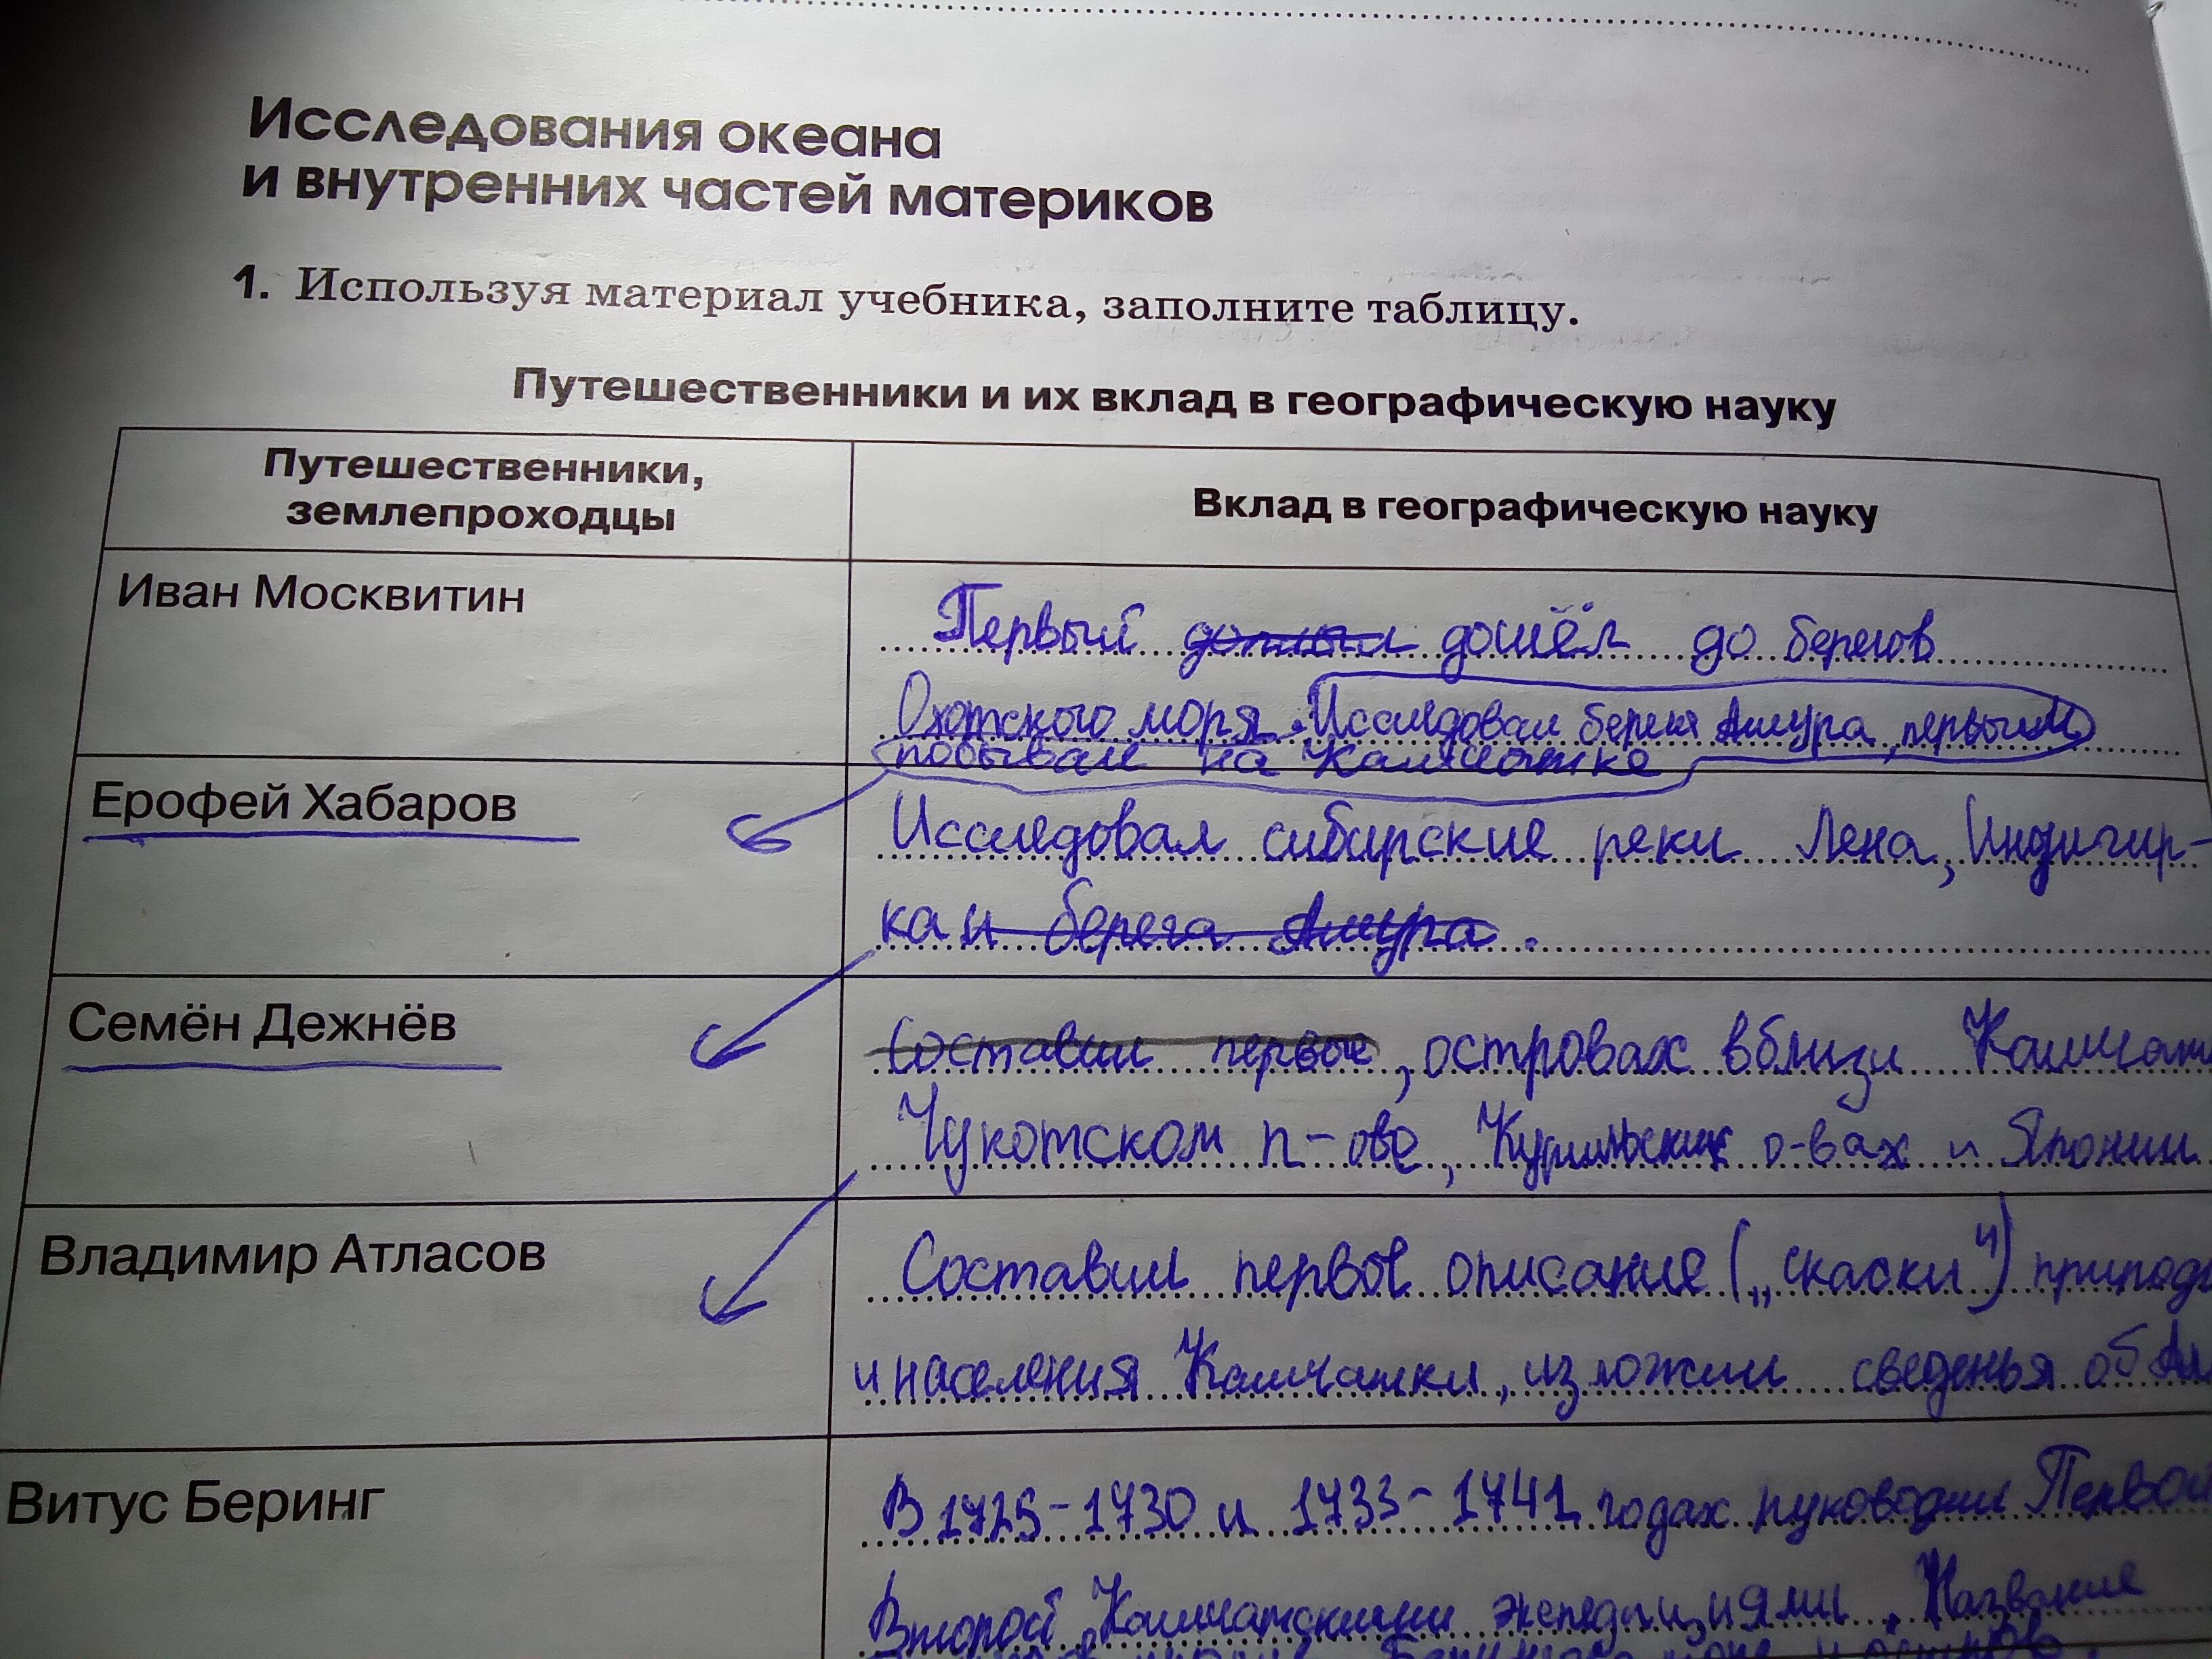 Исследования океана
и внутренних частей материков
1. Используя материал учебника, заполните таблицу.
Путешественники и их вклад в географическую науку
Путешественники,
землепроходцы
Вклад в географическую науку
Иван Москвитин
Первый дошёл до берегов
Охотского моря. Исследовал берега Амура, первым
побывал на Камчатке
Ерофей Хабаров
Исследовал сибирские реки Лена, Индигир-
ка и берега Амура.
Семён Дежнёв
Составил первое, островах вблизи
Чукотском п-ове, Курильских о-вах и Японии
Владимир Атласов
Составил первое описание („скаски") 
и населения Камчатки, изложил сведенья об
Витус Беринг
В 1725-1730 и 1733-1741 годах руководил Первой
Второй Камчатскими экспедициями. Название